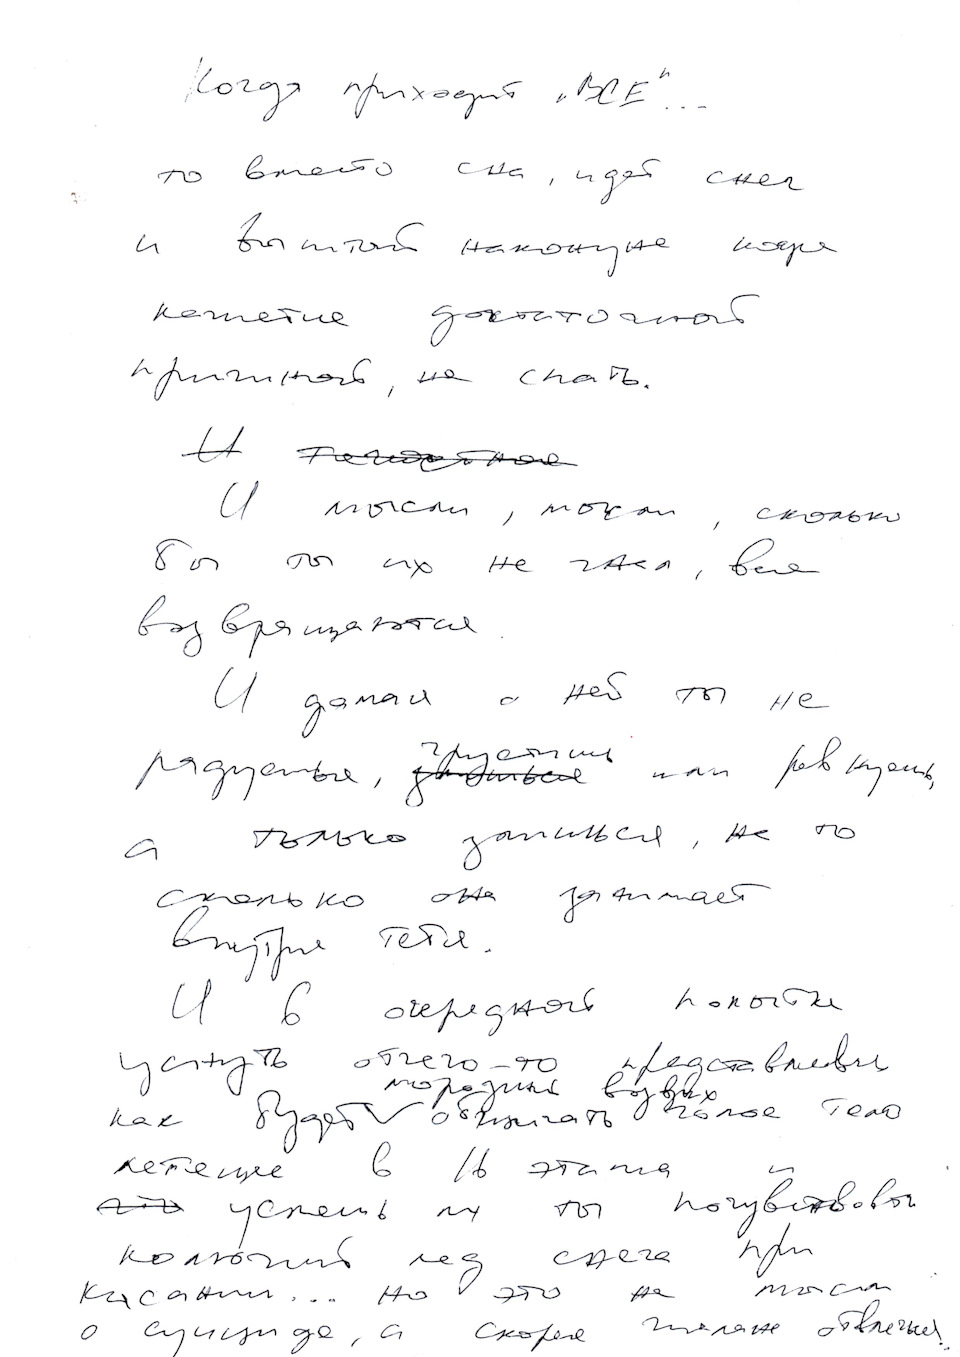 Когда приходит „ВСЕ"...
то вместо сна, идет снег
и выпитый накануне кофе
кажется достаточной
причиной, не спать.
И
И мысли, мысли, сколько
бы ты их не гнал, все
возвращаются.
И думая о ней ты не
радуешься, грустишь или ревнуешь,
а только злишься, на то
сколько она занимает
внутри тебя.
И в очередной попытке
уснуть отчего-то представляешь
как будет морозный воздух обжигать голое тело
летящее с 16 этажа и
успеешь ли ты почувствовать
колючий лед снега при
касании... но это не мысли
о суициде, а скорее желание отвлечься.